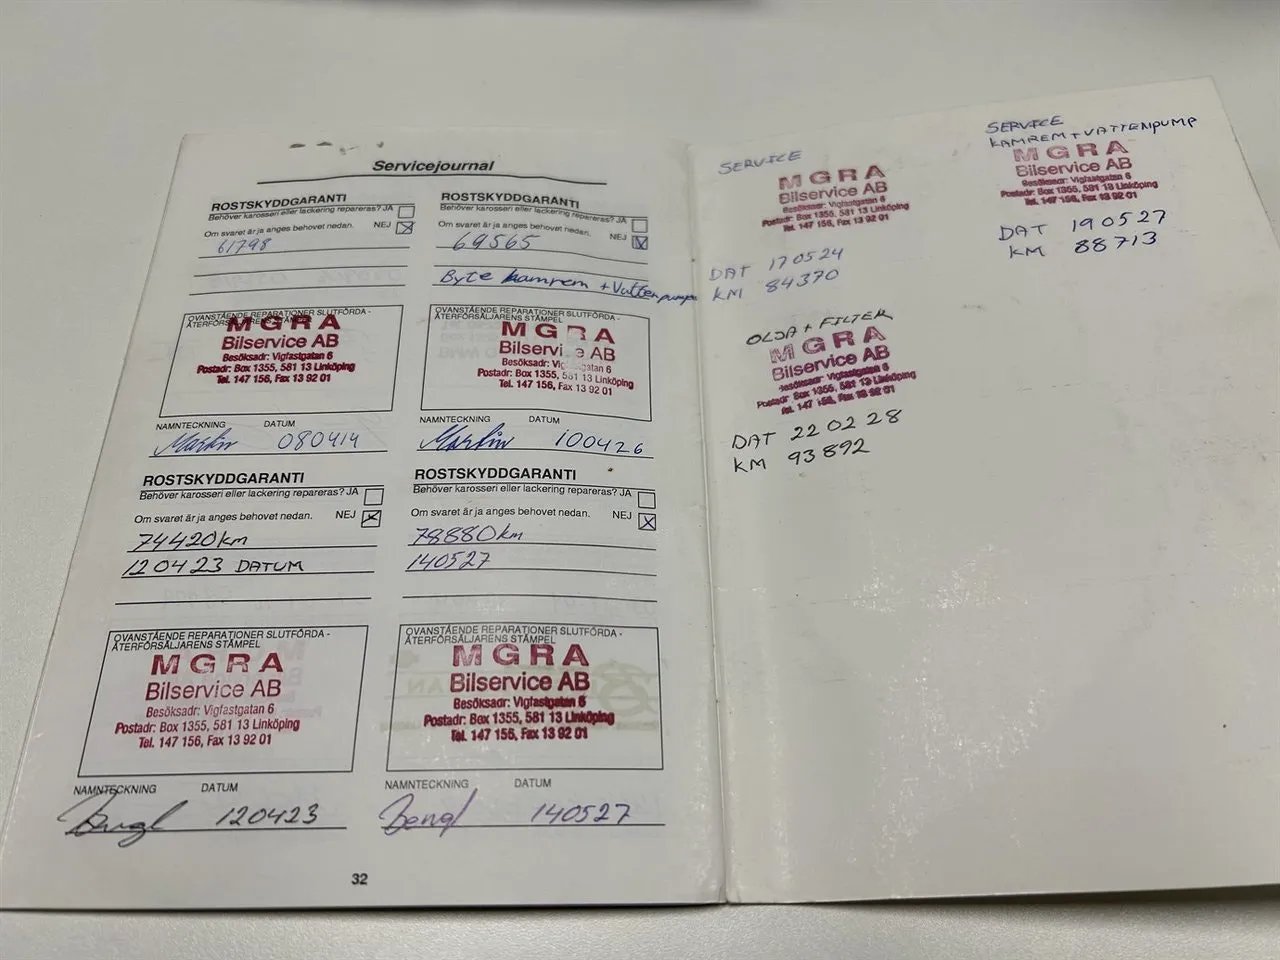 Servicejournal
ROSTSKYDDGARANTI
Behöver karosseri eller lackering repareras? JA
Om svaret är ja anges behovet nedan. NEJ
61798
OVANSTÅENDE REPARATIONER SLUTFÖRDA -
ÅTERFÖRSÄLJARENS STÄMPEL
MGRA
Bilservice AB
Besöksadr: Vigfastgatan 6
Postadr: Box 1355, 581 13 Linköping
Tel. 147 156, Fax 13 92 01
NAMNTECKNING DATUM
Martin 080414
ROSTSKYDDGARANTI
Behöver karosseri eller lackering repareras? JA
Om svaret är ja anges behovet nedan. NEJ
69565
Byte kamrem + Vattenpump
OVANSTÅENDE REPARATIONER SLUTFÖRDA -
ÅTERFÖRSÄLJARENS STÄMPEL
MGRA
Bilservice AB
Besöksadr: Vigfastgatan 6
Postadr: Box 1355, 581 13 Linköping
Tel. 147 156, Fax 13 92 01
NAMNTECKNING DATUM
Martin 100426
ROSTSKYDDGARANTI
Behöver karosseri eller lackering repareras? JA
Om svaret är ja anges behovet nedan. NEJ
74420km
120423 DATUM
OVANSTÅENDE REPARATIONER SLUTFÖRDA -
ÅTERFÖRSÄLJARENS STÄMPEL
MGRA
Bilservice AB
Besöksadr: Vigfastgatan 6
Postadr: Box 1355, 581 13 Linköping
Tel. 147 156, Fax 13 92 01
NAMNTECKNING DATUM
120423
ROSTSKYDDGARANTI
Behöver karosseri eller lackering repareras? JA
Om svaret är ja anges behovet nedan. NEJ
78880km
140527
OVANSTÅENDE REPARATIONER SLUTFÖRDA -
ÅTERFÖRSÄLJARENS STÄMPEL
MGRA
Bilservice AB
Besöksadr: Vigfastgatan 6
Postadr: Box 1355, 581 13 Linköping
Tel. 147 156, Fax 13 92 01
NAMNTECKNING DATUM
140527
32
SERVICE
MGRA
Bilservice AB
Besöksadr: Vigfastgatan 6
Postadr: Box 1355, 581 13 Linköping
Tel. 147 156, Fax 13 92 01
DAT 170524
KM 84370
SERVICE
KAMREM+VATTENPUMP
MGRA
Bilservice AB
Besöksadr: Vigfastgatan 6
Postadr: Box 1355, 581 13 Linköping
Tel. 147 156, Fax 13 92 01
DAT 190527
KM 88713
OLJA + FILTER
MGRA
Bilservice AB
Besöksadr: Vigfastgatan 6
Postadr: Box 1355, 581 13 Linköping
Tel. 147 156, Fax 13 92 01
DAT 220228
KM 93892